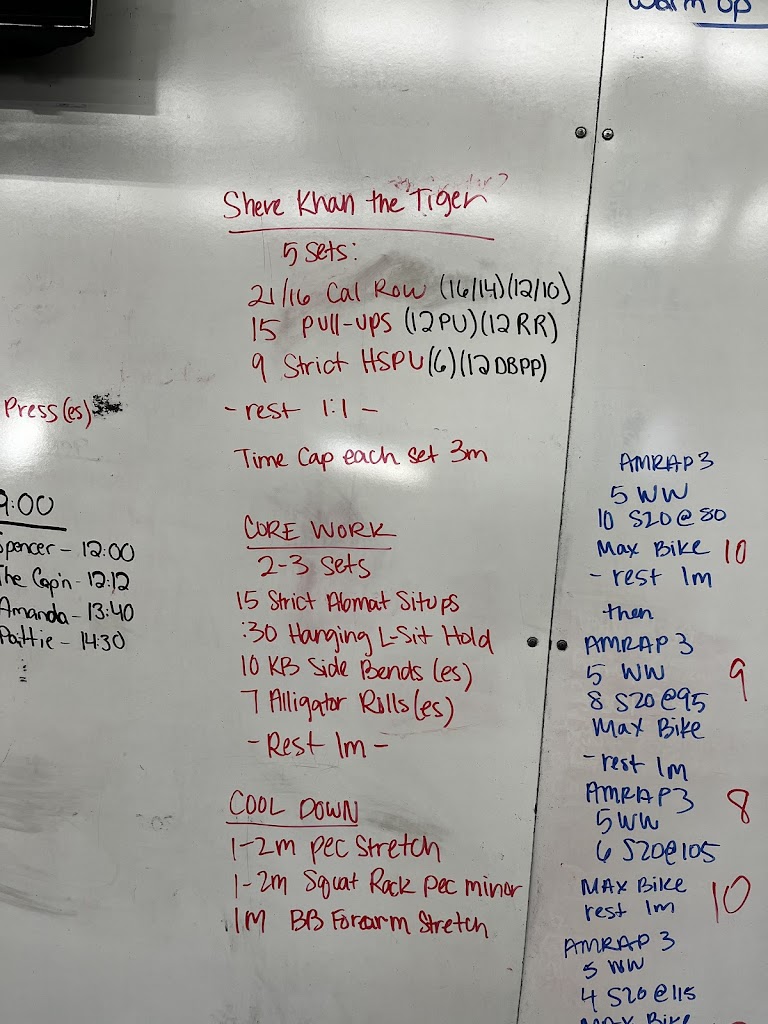 warm up
Shere Khan the Tiger
5 Sets:
21/16 Cal Row (16/14)(12/10)
15 Pull-ups (12 PU)(12 RR)
9 Strict HSPU (6)(12 DBPP)
- rest 1:1 -
Time Cap each set 3m
CORE WORK
2-3 Sets
15 Strict Abmat Situps
:30 Hanging L-Sit Hold
10 KB Side Bends (es)
7 Alligator Rolls (es)
- Rest 1m -
COOL DOWN
1-2m Pec Stretch
1-2m Squat Rack Pec minor
1m BB Forearm Stretch
Press (es)
9:00
Spencer - 12:00
The Cap'n - 12:12
Amanda - 13:40
Pattie - 14:30
AMRAP 3
5 WW
10 S20 @ 80
Max Bike 10
- rest 1m
then
AMRAP 3
5 WW 9
8 S20 @ 95
Max Bike
- rest 1m
AMRAP 3 8
5 WW
6 S20 @ 105
MAX Bike
rest 1m 10
AMRAP 3
5 WW
4 S20 @ 115
MAX Bike